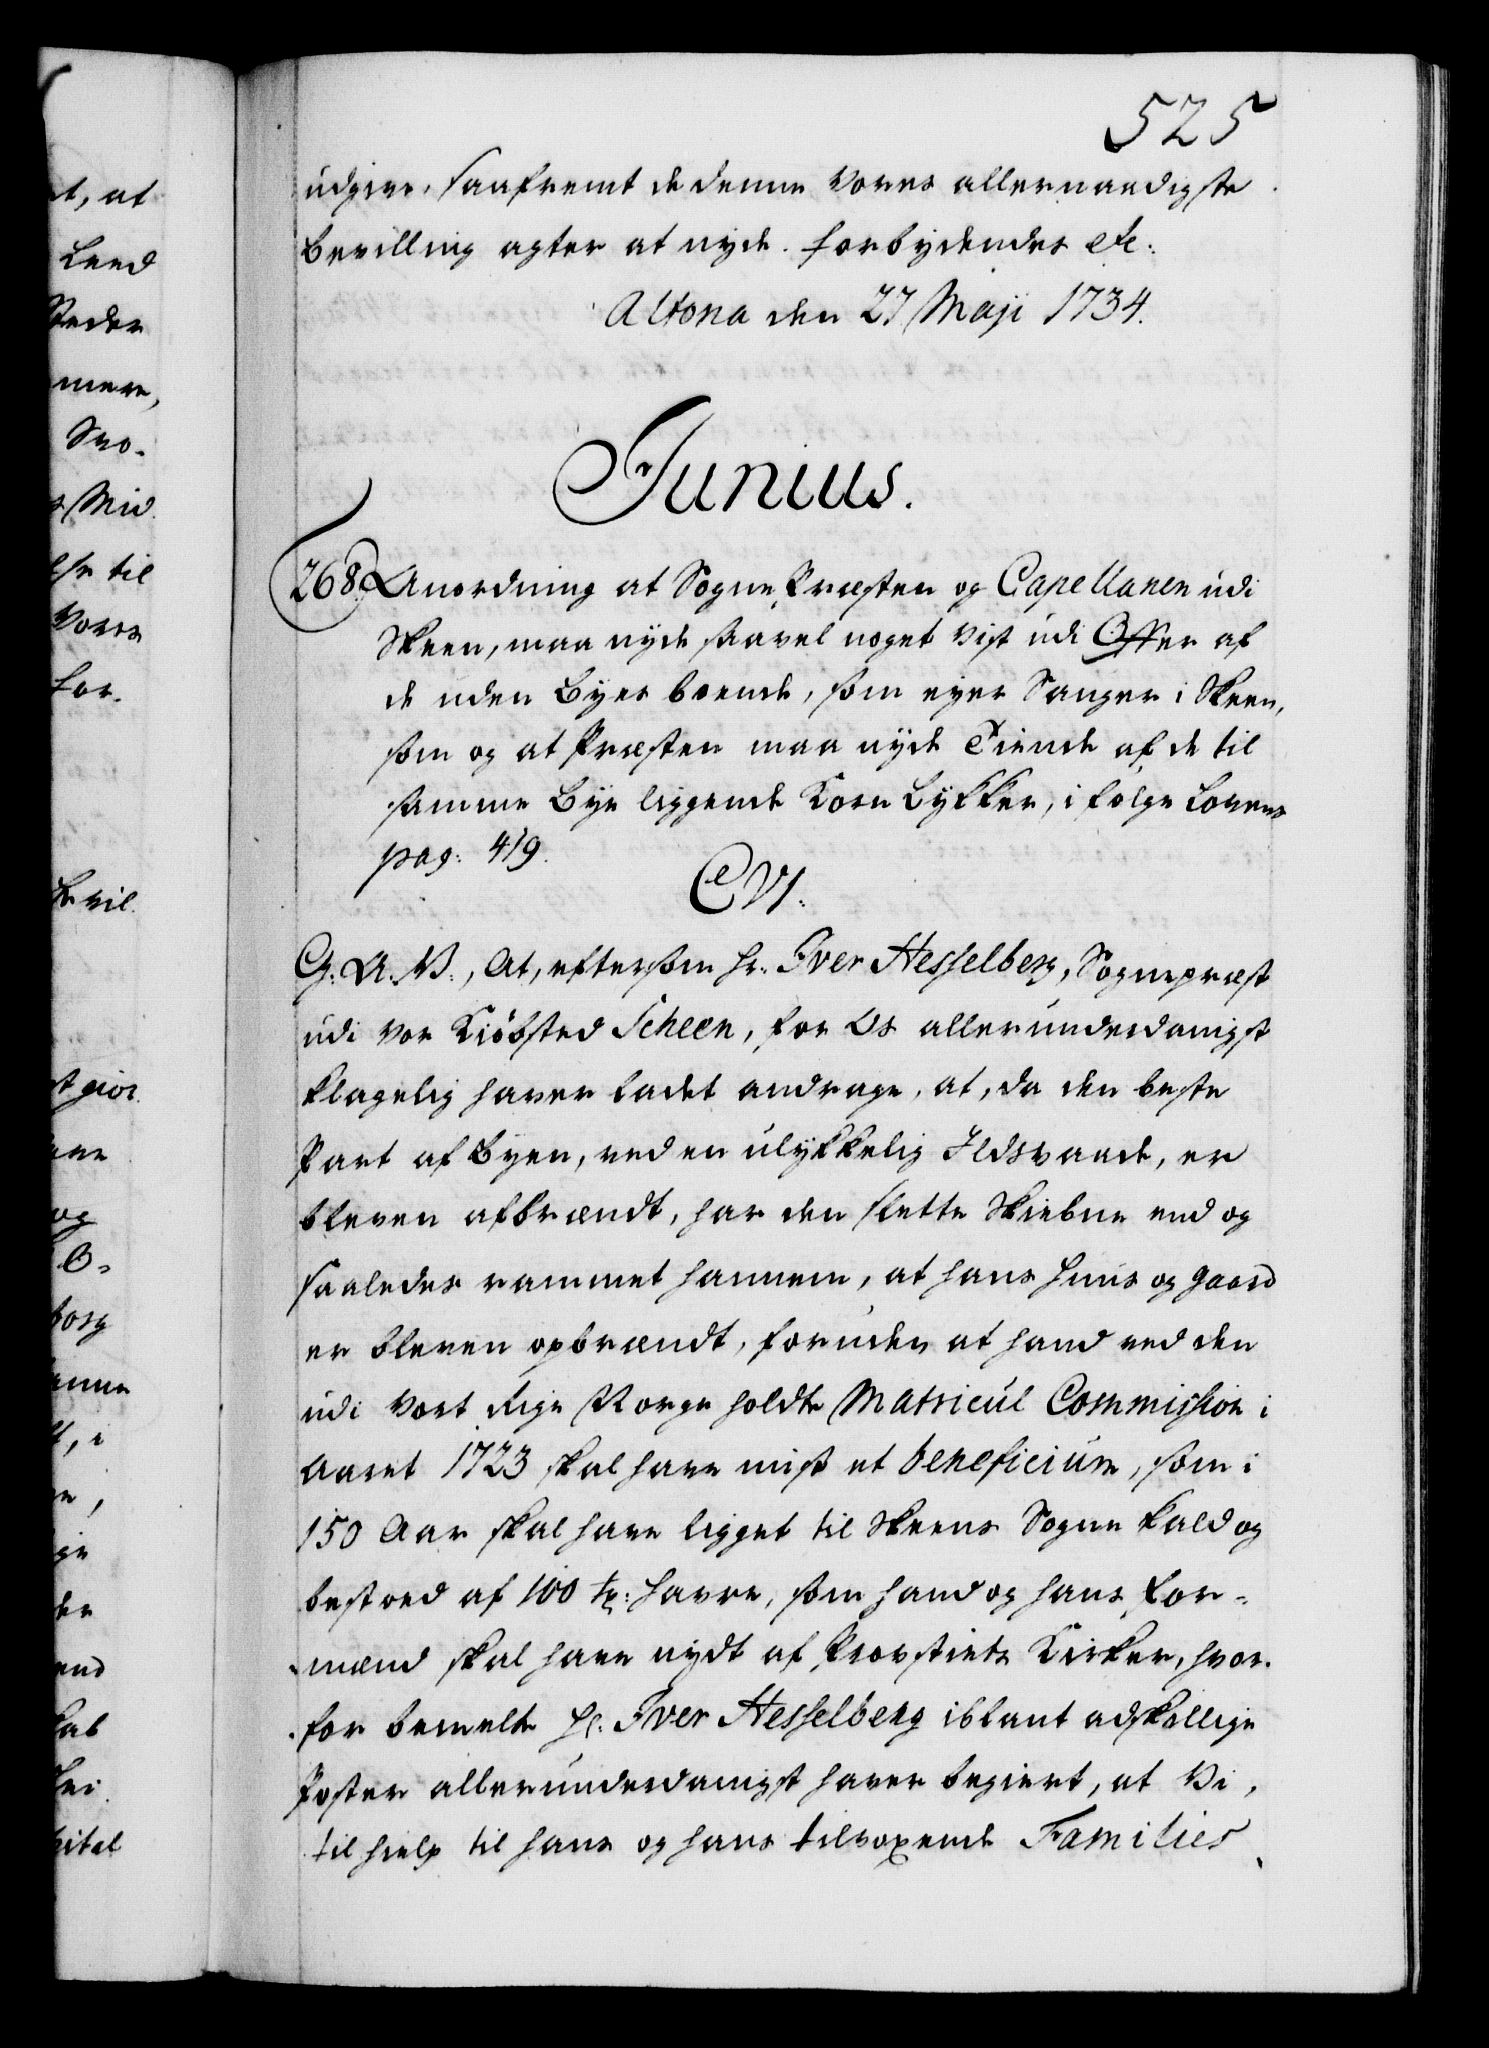 525
udgive, saafremt de denne Vores allernaadigste
Bevilling agter at nyde. forbydendes etc:
Altona den 27 Maji 1734.
Junius.
268 Anordning at Sogne Præsten og Capellanen udi
Skeen, maa nyde saavel noget vist udi Offer af
de uden Byes boende, som eyer Sauger i Skeen,
som og at Præsten maa nyde Tiende af de til
samme Bye liggende Korn Løkker, i følge Loven
pag: 419.
C VI.
G: A. V:, At, eftersom Hr. Iver Hesselberg, Sognepræst
udi vor Kiøbsted Scheen, for Os allerunderdanigst
klagelig haver ladet andrage, at, da den beste
Part af Byen, ved en ulykkelig Ildsvaade, er
bleven afbrændt, har den slette Skiebne end og
saaledes rammet hannem, at hans Huus og gaard
er bleven opbrændt, foruden at hand ved den
udi vort Rige Norge holdte Matricul Commission i
Aaret 1723 skal have mist et beneficium, som i
150 Aar skal have ligget til Skeens Sogne Kald og
bestoed af 100 tr: Havre, som hand og hans For-
mænd skal have nydt af Provstiets Kirker, hvor-
for bemelte Hr. Iver Hesselberg iblant adskellige
Poster allerunderdanigst haver begiert, at Vi,
til hielp til hans og hans tilvoxende Families
t, at
Leed
Steder
mere,
Sno-
Mid
til
Vores
For-
Bevil
gior
og
O-
borg